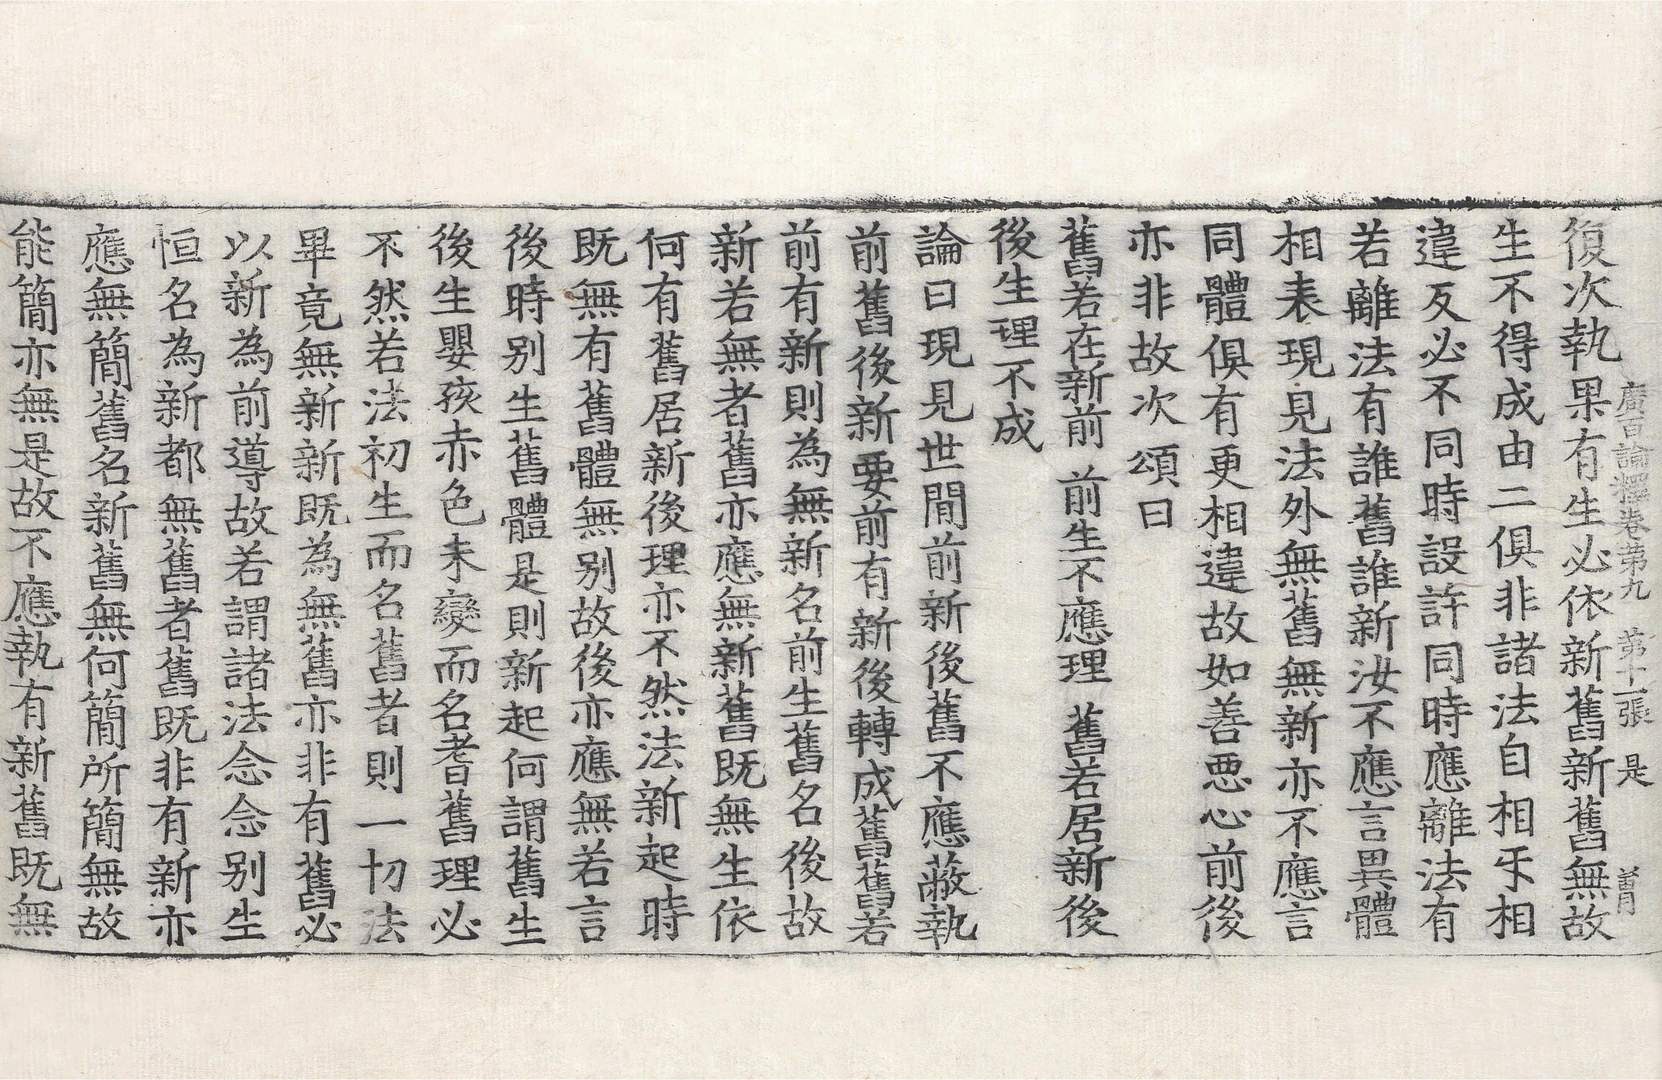 廣百論釋卷第九 第十一張 是
復次執果有生必依新舊新舊無故
生不得成由二俱非諸法自相乎相
違反必不同時設許同時應離法有
若離法有誰舊誰新汝不應言異體
相表現見法外無舊無新亦不應言
同體俱有更相違故如善惡心前後
亦非故次頌曰
舊若在新前 前生不應理 舊若居新後
後生理不成
論曰現見世間前新後舊不應蔽執
前舊後新要前有新後轉成舊舊若
前有新則為無新名前生舊名後故
新若無者舊亦應無新舊既無生依
何有舊居新後理亦不然法新起時
既無有舊體無別故後亦應無若言
後時別生舊體是則新起何謂舊生
後生嬰孩赤色未變而名耆舊理必
不然若法初生而名舊者則一切法
畢竟無新新既為無舊亦非有舊必
以新為前導故若謂諸法念念別生
恒名為新都無舊者舊既非有新亦
應無簡舊名新舊無何簡所簡無故
能簡亦無是故不應執有新舊既無